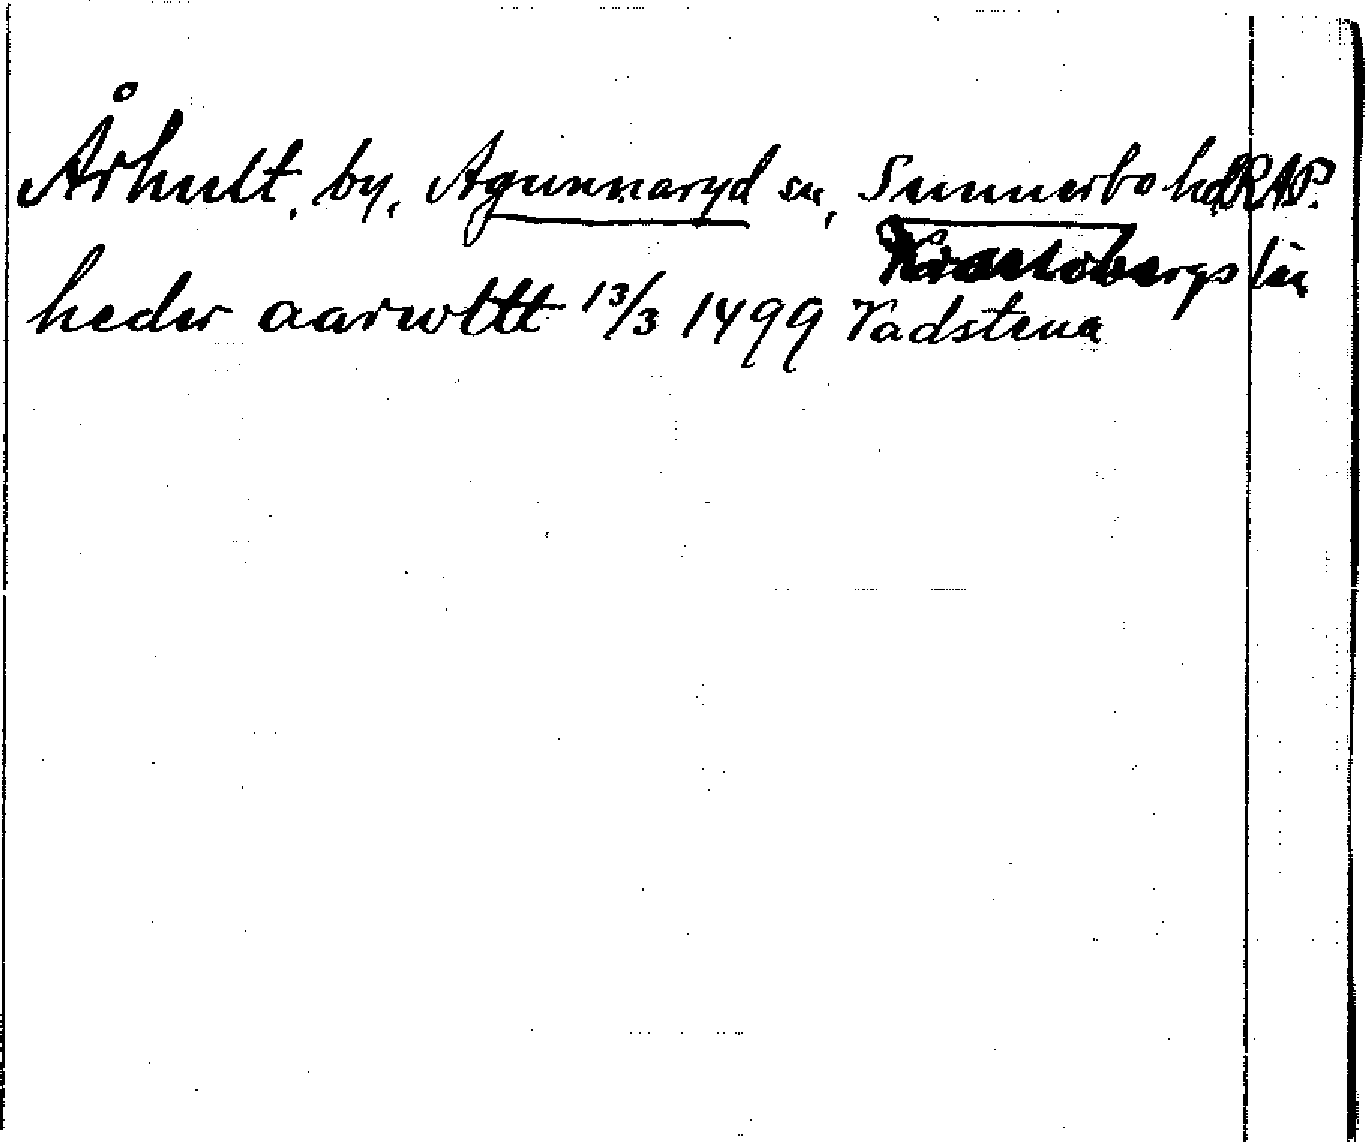 Århult, by, Agunnaryd sn, Sunnerbo hd RAP.
Kronobergs län
heder aarwltt 13/3 1499 Vadstena